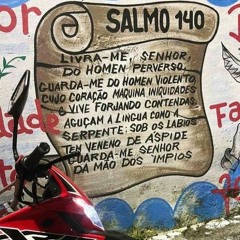 SALMO 140
LIVRA-ME, SENHOR,
DO HOMEN PERVERSO,
GUARDA-ME DO HOMEN VIOLENTO,
CUJO CORAÇÃO MAQUINA INIQUIDADES
E VIVE FORJANDO CONTENDAS.
AGUÇAM A LINGUA COMO A
SERPENTE: SOB OS LÁBIOS
TEN VENENO DE ÁSPIDE
GUARDA-ME SENHOR
DA MÃO DOS IMPIOS